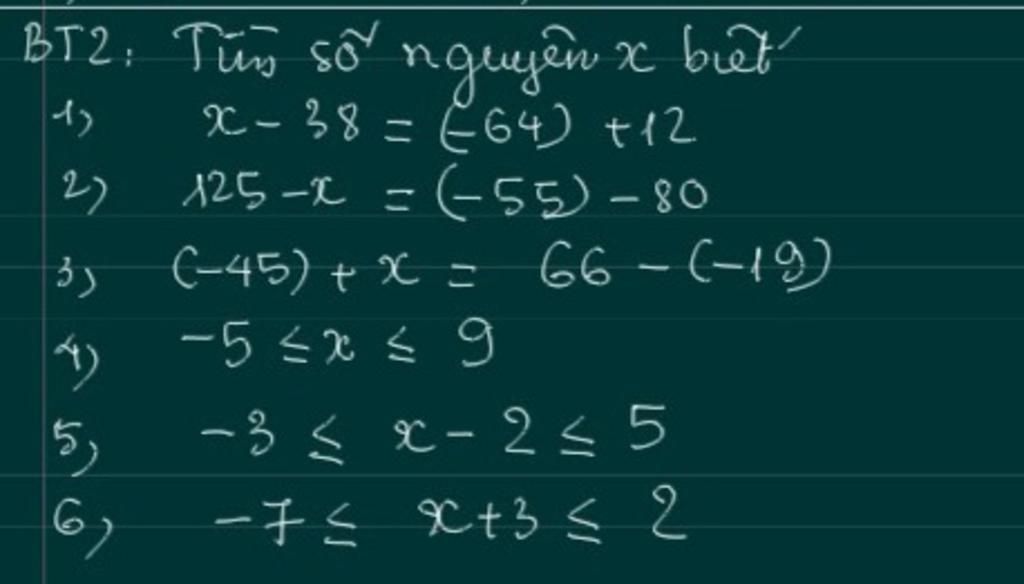 BT2: Tìm số nguyên x biết
1) x - 38 = (-64) + 12
2) 125 - x = (-55) - 80
3) (-45) + x = 66 - (-19)
4) -5 ≤ x ≤ 9
5) -3 ≤ x - 2 ≤ 5
6) -7 ≤ x + 3 ≤ 2